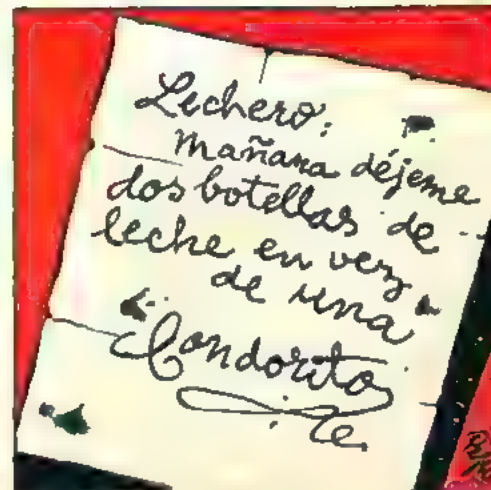 Lechero:
Mañana déjeme
dos botellas de
leche en vez
de una
Condorito